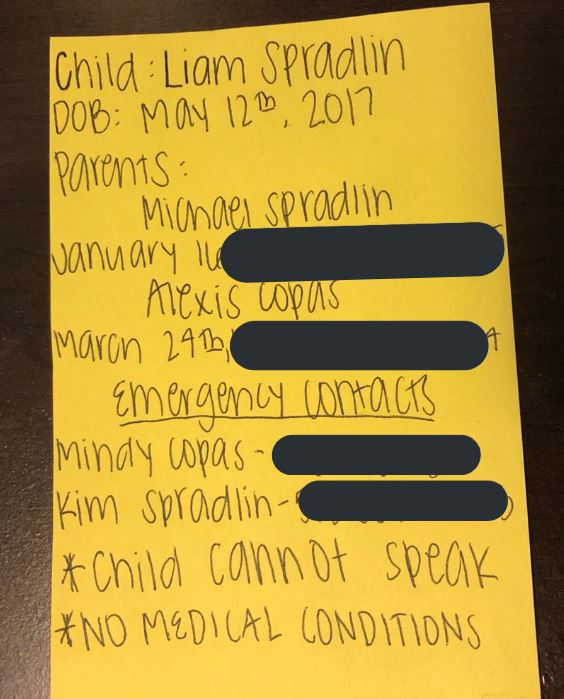 Child: Liam Spradlin
DOB: May 12th, 2017
Parents:
Michael Spradlin
January
Alexis Copas
March 24th,
Emergency Contacts
Mindy Copas -
Kim Spradlin -
*Child cannot speak
*NO MEDICAL CONDITIONS